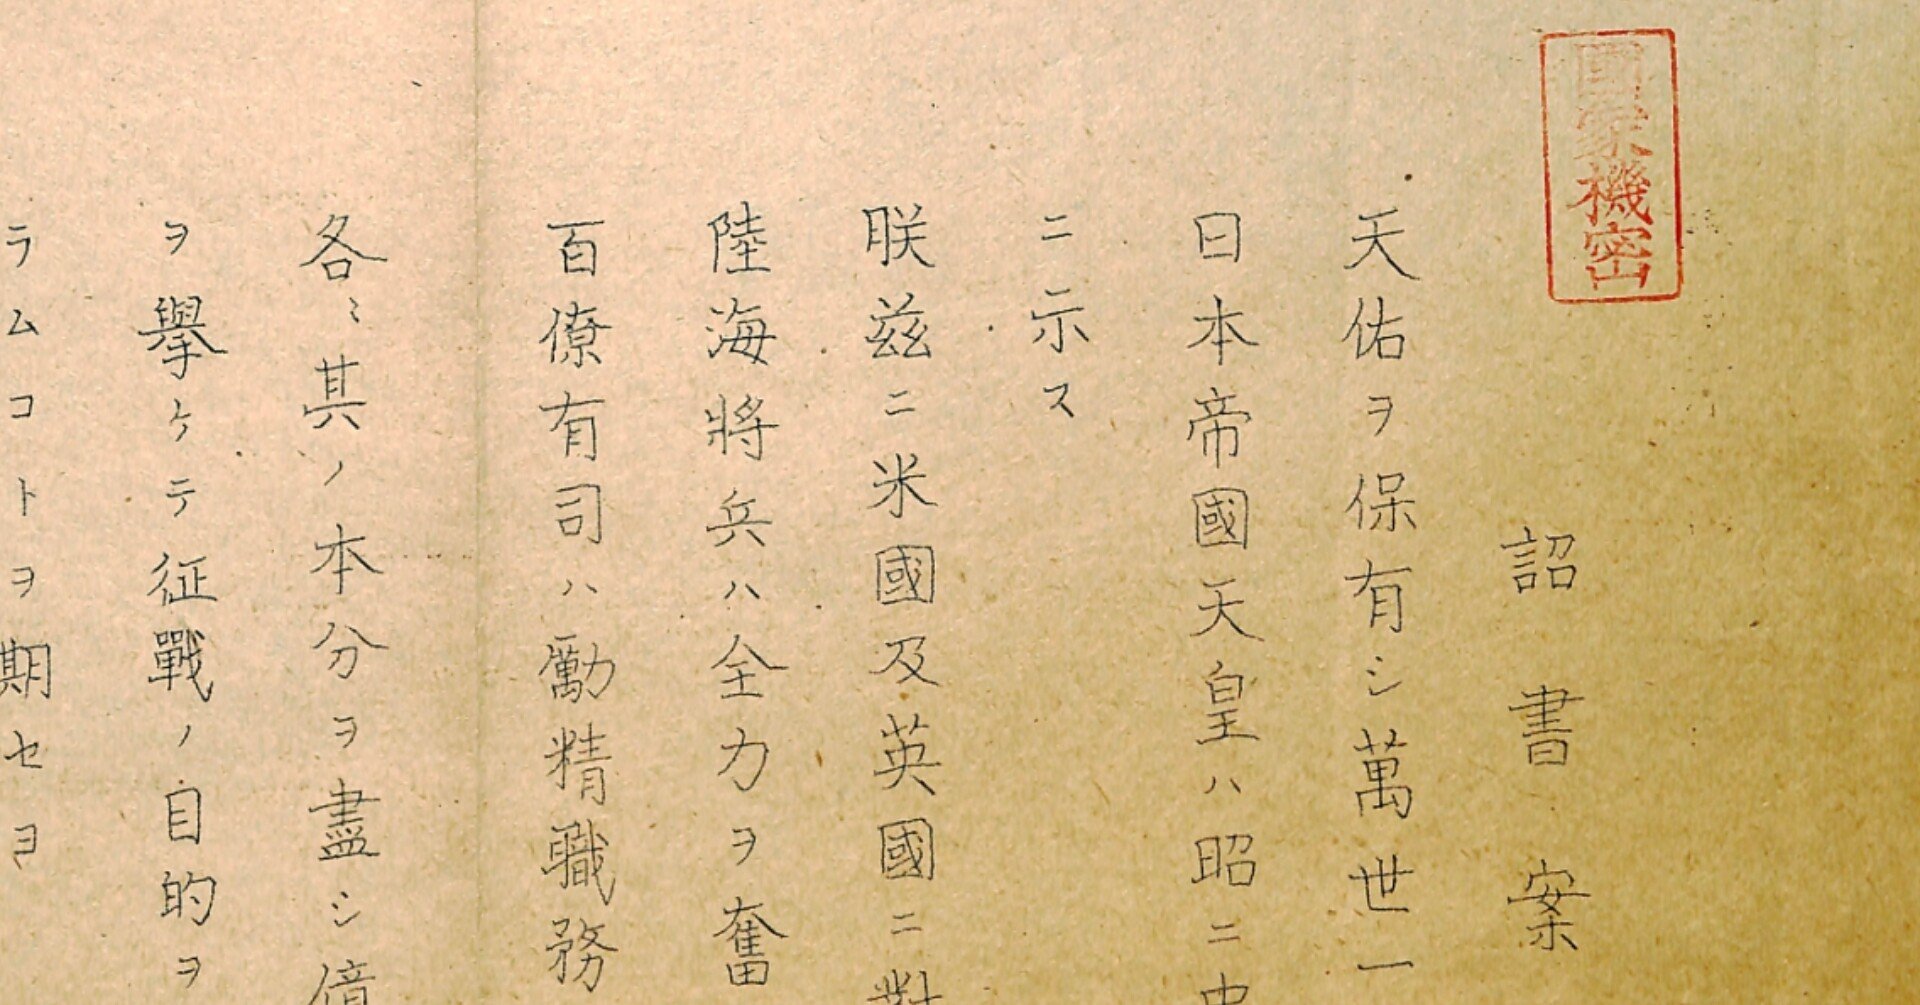 國家機密
詔書案
天佑ヲ保有シ萬世一
日本帝國天皇ハ昭ニ忠
ニ示ス
朕茲ニ米國及英國ニ對
陸海將兵ハ全力ヲ奮
百僚有司ハ勵精職務
各〻其ノ本分ヲ盡シ億
ヲ擧ケテ征戰ノ目的ヲ
ラムコトヲ期セヨ